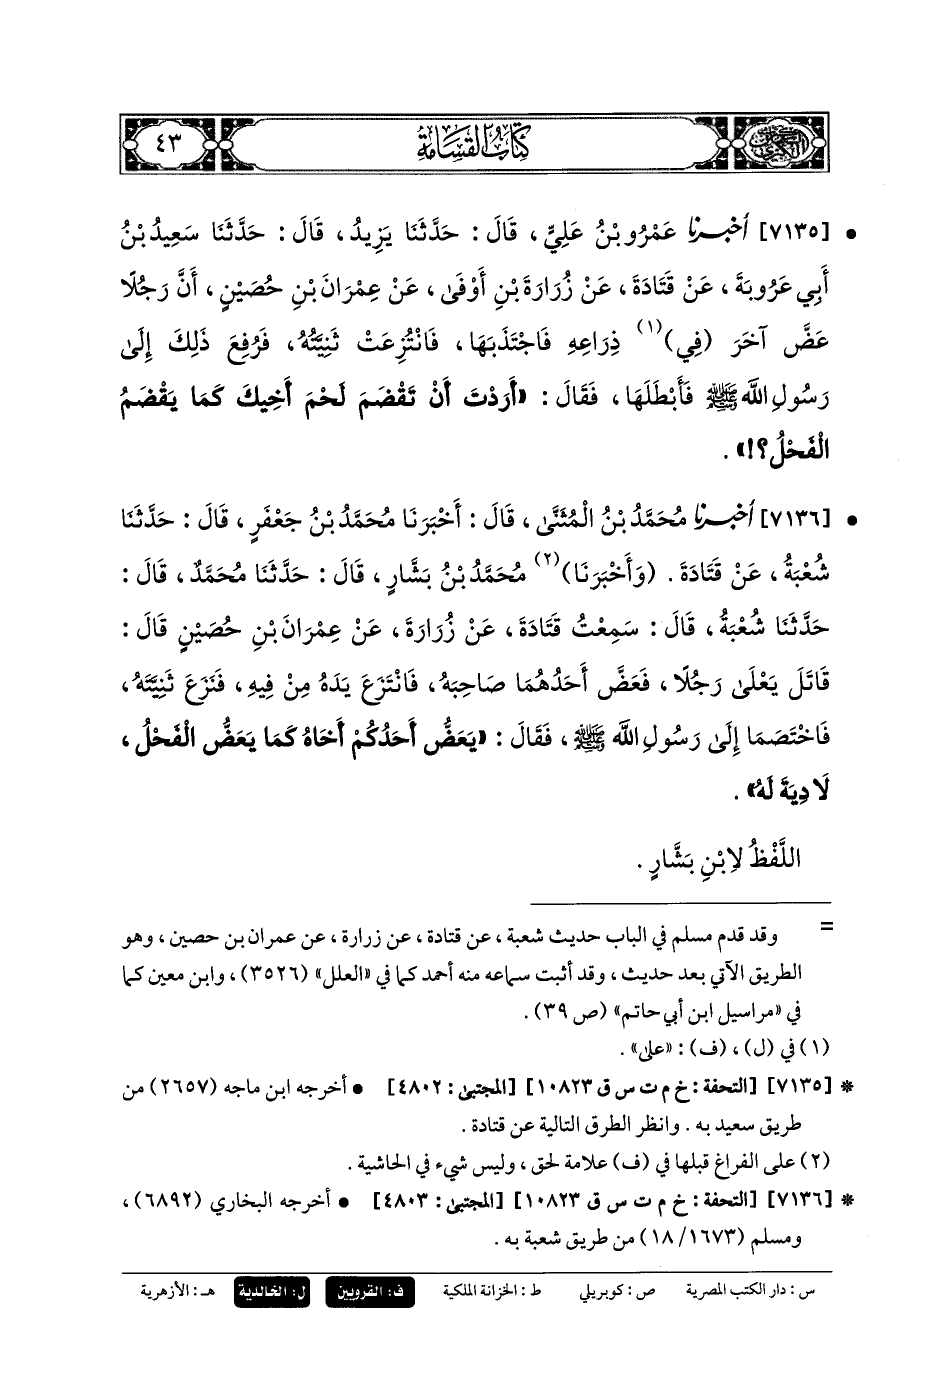 كتاب القسامة
٤٣
• [٧١٣٥] أَخْبَرَنَا عَمْرُو بْنُ عَلِيٍّ ، قَالَ : حَدَّثَنَا يَزِيدُ ، قَالَ : حَدَّثَنَا سَعِيدُ بْنُ
أَبِي عَرُوبَةَ ، عَنْ قَتَادَةَ ، عَنْ زُرَارَةَ بْنِ أَوْفَى ، عَنْ عِمْرَانَ بْنِ حُصَيْنٍ ، أَنَّ رَجُلًا
عَضَّ آخَرَ (فِي)(١) ذِرَاعِهِ فَاجْتَذَبَهَا ، فَانْتُزِعَتْ ثَنِيَّتُهُ ، فَرُفِعَ ذَلِكَ إِلَى
رَسُولِ اللَّه ﷺ فَأَبْطَلَهَا ، فَقَالَ : «أَرَدْتَ أَنْ تَقْضَمَ لَحْمَ أَخِيكَ كَمَا يَقْضَمُ
الْفَحْلُ؟!» .
• [٧١٣٦] أَخْبَرَنَا مُحَمَّدُ بْنُ الْمُثَنَّى ، قَالَ : أَخْبَرَنَا مُحَمَّدُ بْنُ جَعْفَرٍ ، قَالَ : حَدَّثَنَا
شُعْبَةُ ، عَنْ قَتَادَةَ . (وَأَخْبَرَنَا)(٢) مُحَمَّدُ بْنُ بَشَّارٍ ، قَالَ : حَدَّثَنَا مُحَمَّدٌ ، قَالَ :
حَدَّثَنَا شُعْبَةُ ، قَالَ : سَمِعْتُ قَتَادَةَ ، عَنْ زُرَارَةَ ، عَنْ عِمْرَانَ بْنِ حُصَيْنٍ قَالَ :
قَاتَلَ يَعْلَى رَجُلًا ، فَعَضَّ أَحَدُهُمَا صَاحِبَهُ ، فَانْتَزَعَ يَدَهُ مِنْ فِيهِ ، فَنَزَعَ ثَنِيَّتَهُ ،
فَاخْتَصَمَا إِلَى رَسُولِ اللَّه ﷺ ، فَقَالَ : «يَعَضُّ أَحَدُكُمْ أَخَاهُ كَمَا يَعَضُّ الْفَحْلُ ،
لَا دِيَةَ لَهُ» .
اللَّفْظُ لِابْنِ بَشَّارٍ .
= وقد قدم مسلم في الباب حديث شعبة ، عن قتادة ، عن زرارة ، عن عمران بن حصين ، وهو
الطريق الآتي بعد حديث ، وقد أثبت سماعه منه أحمد كما في «العلل» (٣٥٢٦) ، وابن معين كما
في «مراسيل ابن أبي حاتم» (ص ٣٩) .
(١) في (ل) ، (ف) : «على» .
* [٧١٣٥] [التحفة : خ م ت س ق ١٠٨٢٣] [المجتبى : ٤٨٠٢] • أخرجه ابن ماجه (٢٦٥٧) من
طريق سعيد به . وانظر الطرق التالية عن قتادة .
(٢) على الفراغ قبلها في (ف) علامة لحق ، وليس شيء في الحاشية .
* [٧١٣٦] [التحفة : خ م ت س ق ١٠٨٢٣] [المجتبى : ٤٨٠٣] • أخرجه البخاري (٦٨٩٢) ،
ومسلم (١٨/١٦٧٣) من طريق شعبة به .
س : دار الكتب المصرية ص : كوبريلي ط : الخزانة الملكية ف : القرويين ل : الخالدية هـ : الأزهرية